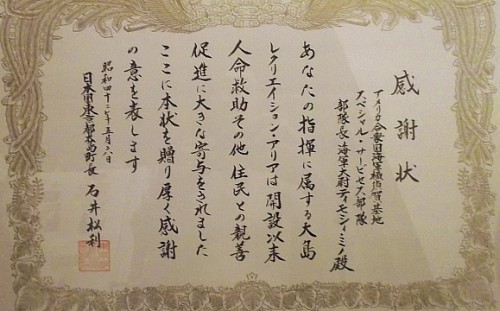 感謝状
アメリカ合衆国海軍横須賀基地
スペシャル・サービセス部隊
部隊長海軍大尉ティモシィ 殿
あなたの指揮に属する大島
レクリエイション・アリアは開設以来
人命救助その他住民との親善
促進に大きな寄与をされました
ここに本状を贈り厚く感謝
の意を表します
昭和四十二年 五月 日
日本国東京都大島町長 石井松利